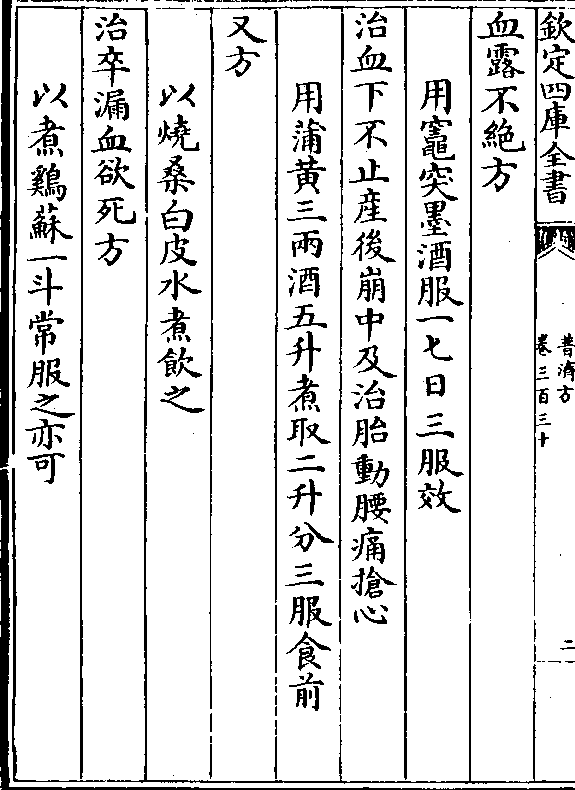 欽定四庫全書
普濟方
卷三百三十
二
血露不絶方
用竈突墨酒服一七日三服效
治血下不止産後崩中及治胎動腰痛搶心
用蒲黄三兩酒五升煮取二升分三服食前
又方
以燒桑白皮水煮飲之
治卒漏血欲死方
以煮鷄蘇一斗常服之亦可